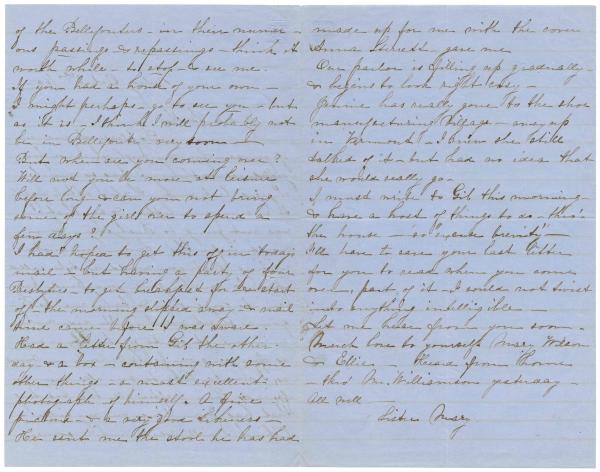 of the Bellefonters - in their numer-
ous passings & repassings - think it
worth while to stop & see me.
If you had a home of your own -
I might perhaps - go to see you - but
as it is - I think I will probably not
be in Bellefonte very soon -
But when are you coming over?
Will not you be more at leisure
before long & can you not bring
some of the girls over to spend a
few days?
I had hoped to get this off in todays
mail - but having a party of four
to get for a start
off the morning slipped away & mail
time came before I was aware.
Had a letter from Gib the other
day & a box - containing with some
other things - a most excellent
photograph of himself. A fine
picture - & a very good likeness -
He sent me the stool he has had
made up for me with the cover
Anna gave me
Our parlor is filling up gradually -
& begins to look right cosy -
has really gone to the shoe
manufacturing village - away up
in Vermont - I knew she still
talked of it - but had no idea that
she would really go -
I must write to Gib this morning -
& have a host of things to do - thro'
the house - so excuse brevity -
I'll have to save your last letter
for you to read when you come
over, part of it - I would not twist
into anything intelligible -
Let me hear from you soon -
Much love to yourself Mary, Wilson
& Ellie - Heard from Thomas
- thro' Mr. Williamson yesterday -
All well -
Sister Mary